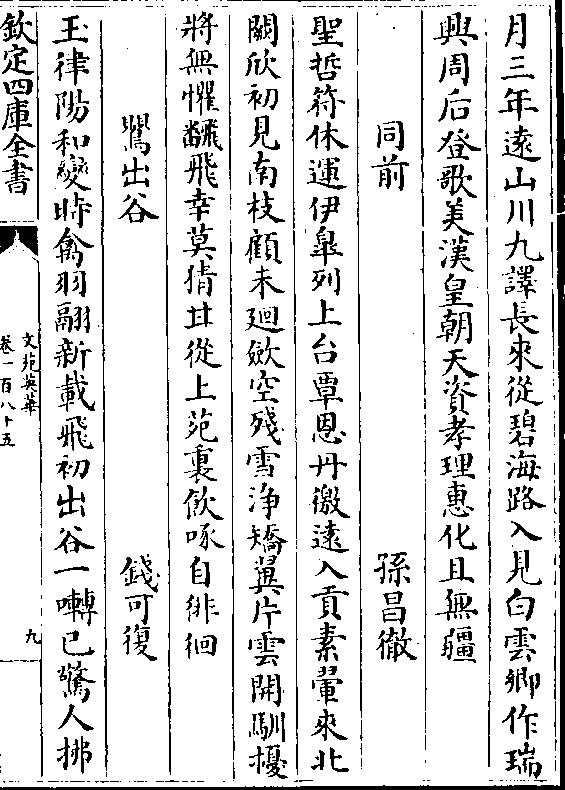 月三年遠山川九譯長來從碧海路入見白雲鄉作瑞
興周后登歌美漢皇朝天資孝理惠化且無疆
同前 孫昌徹
聖哲符休運伊臯列上台覃恩丹徼遠入貢素翬來北
闕欣初見南枝顧未廻斂空殘雪浄矯翼片雲開馴擾
將無懼飜飛幸莫猜甘從上苑裏飲啄自徘徊
鸎出谷 錢可復
玉律陽和變時禽羽翮新載飛初出谷一囀已驚人拂
欽定四庫全書
文苑英華
卷一百八十五
九